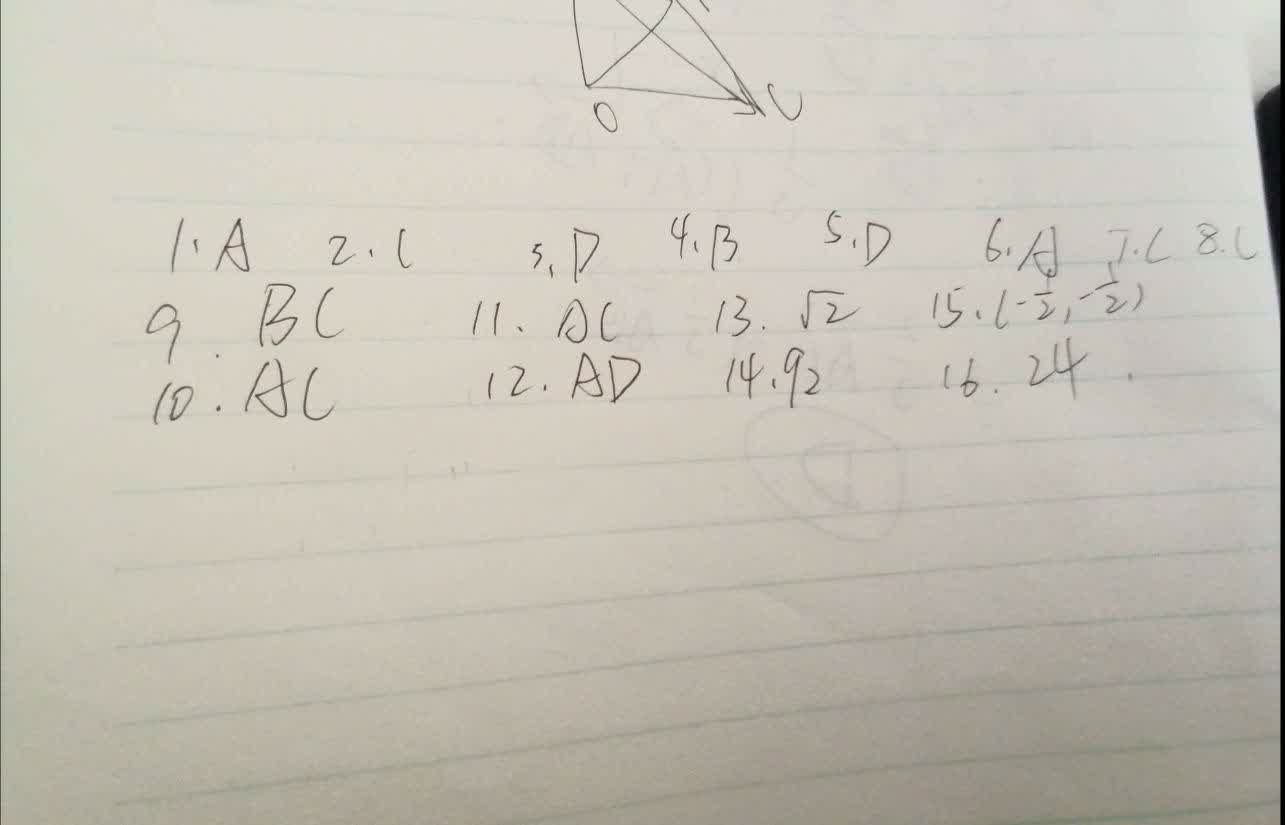 O C
1. A 2. C 3. D 4. B 5. D 6. A 7. C 8. C
9. BC 11. AC 13. √2 15. (-1/2, -1/2)
10. AC 12. AD 14. 92 16. 24.